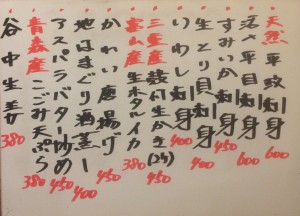 天然 平政刺身 600
活〆平目刺身 600
すみいか刺身 450
生とり貝刺身 400
いわし刺身 400
三重産 殻付生かき(2ケ) 450
富山産 生ホタルイカ 380
かわい唐揚げ 450
地はまぐり酒蒸し 400
アスパラバター炒め 450
青森産 こごみ天ぷら 380
谷中生姜 380